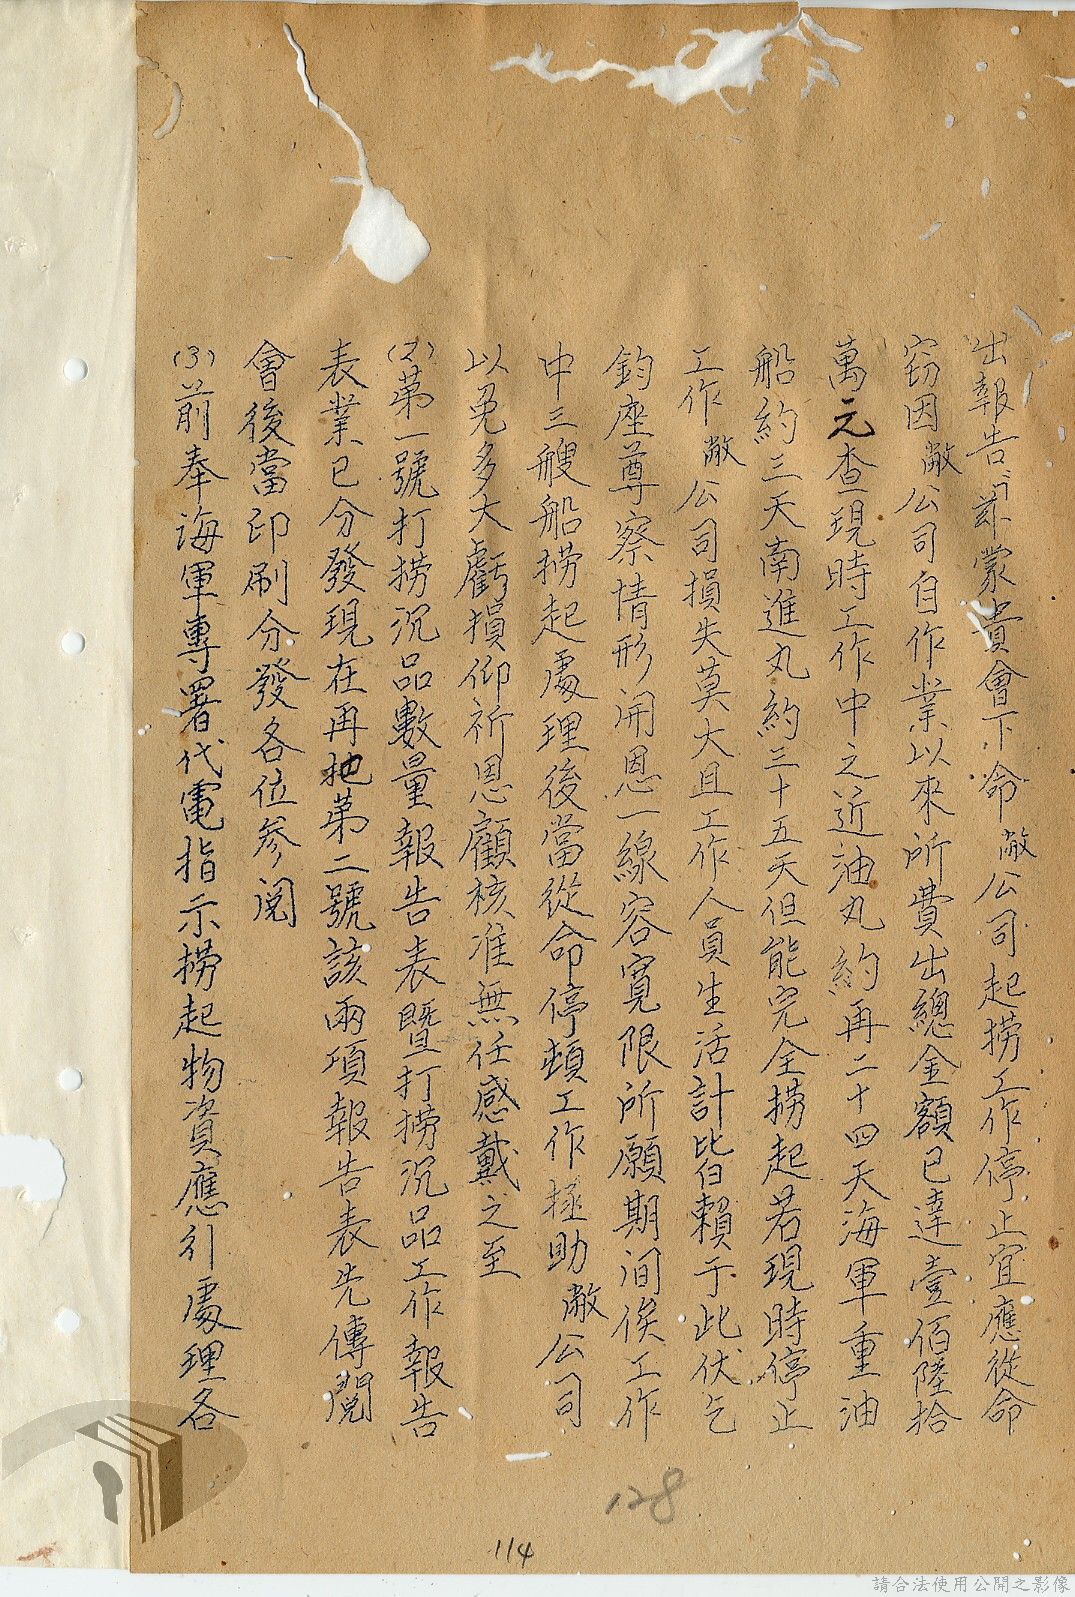 出報告「茲蒙貴會下命敝公司起撈工作停止宜應從命
窃因敝公司自作業以來所費出總金額已達壹佰陸拾
萬元查現時工作中之近油丸約再二十四天海軍重油
船約三天南進丸約三十五天但能完全撈起若現時停止
工作敝公司損失莫大且工作人員生活計皆賴于此伏乞
鈞座尊察情形開恩一線容寬限所願期间俟工作
中三艘船撈起處理後當從命停頓工作拯助敝公司
以免多大虧損仰祈恩顧核准無任感戴之至
(2)第一號打撈沉品數量報告表暨打撈沉品工作報告
表業已分發現在再把第二號該兩項報告表先傳閱
會後當印刷分發各位参阅
(3)前奉海軍專署代電指示撈起物資應引處理各
128
114
請合法使用公開之影像